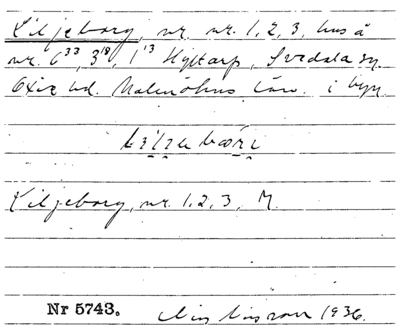 Liljeborg, nr. nr. 1, 2, 3, hus å
nr. 6³³, 3¹⁸, 1¹³ Hyltarp, Svedala sn.
Oxie hd. Malmöhus län. i byn.
Liljeborg, nr. 1, 2, 3, M.
Nr 5743.
1936.